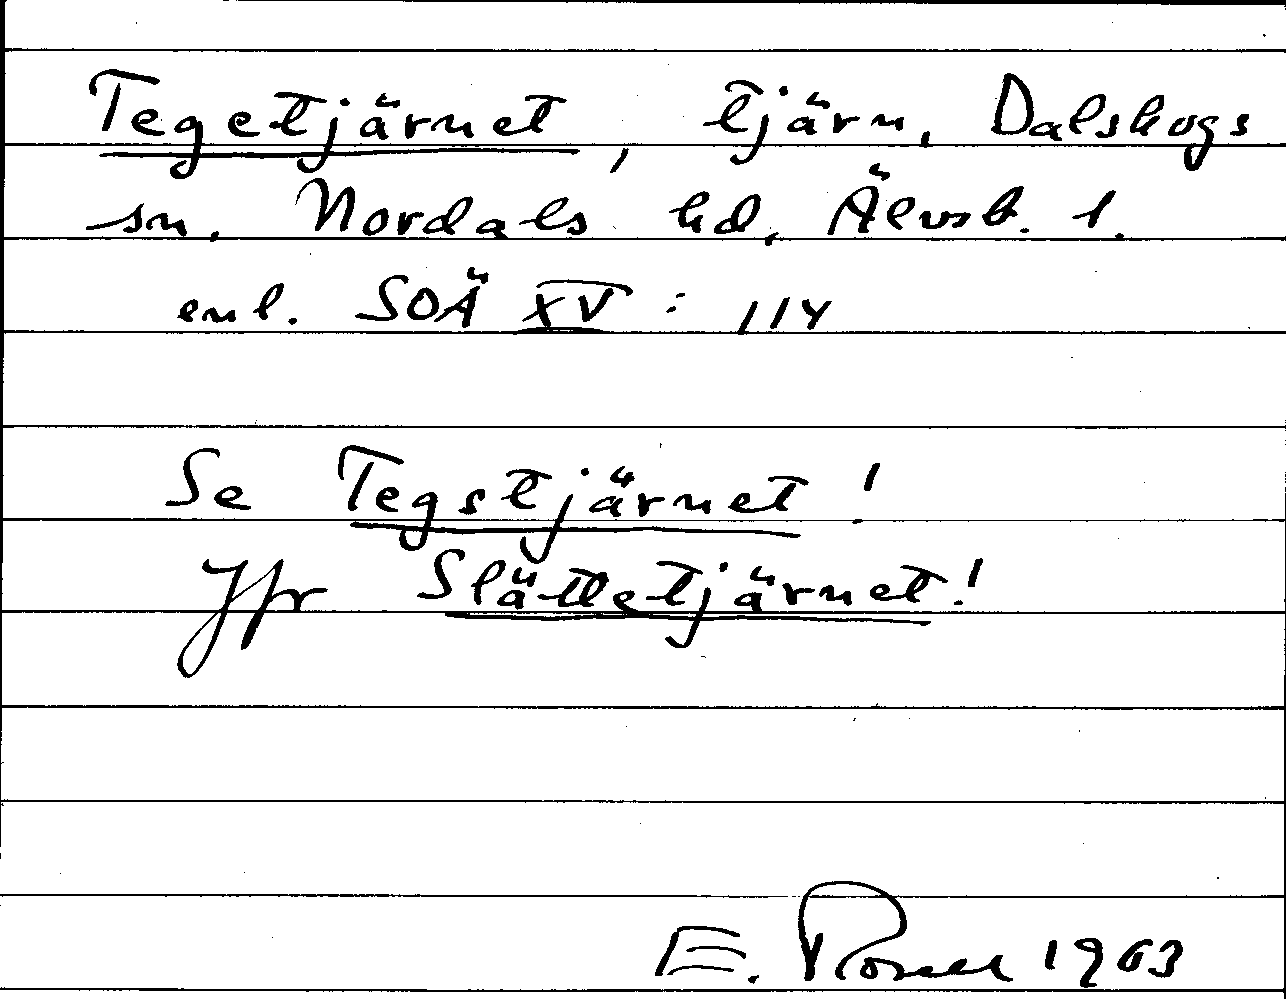 Tegetjärnet, tjärn, Dalskogs
sn. Nordals hd, Älvsb. l.
enl. SOÄ XV : 114
Se Tegstjärnet!
Jfr Slättetjärnet!
E. Rosell 1963